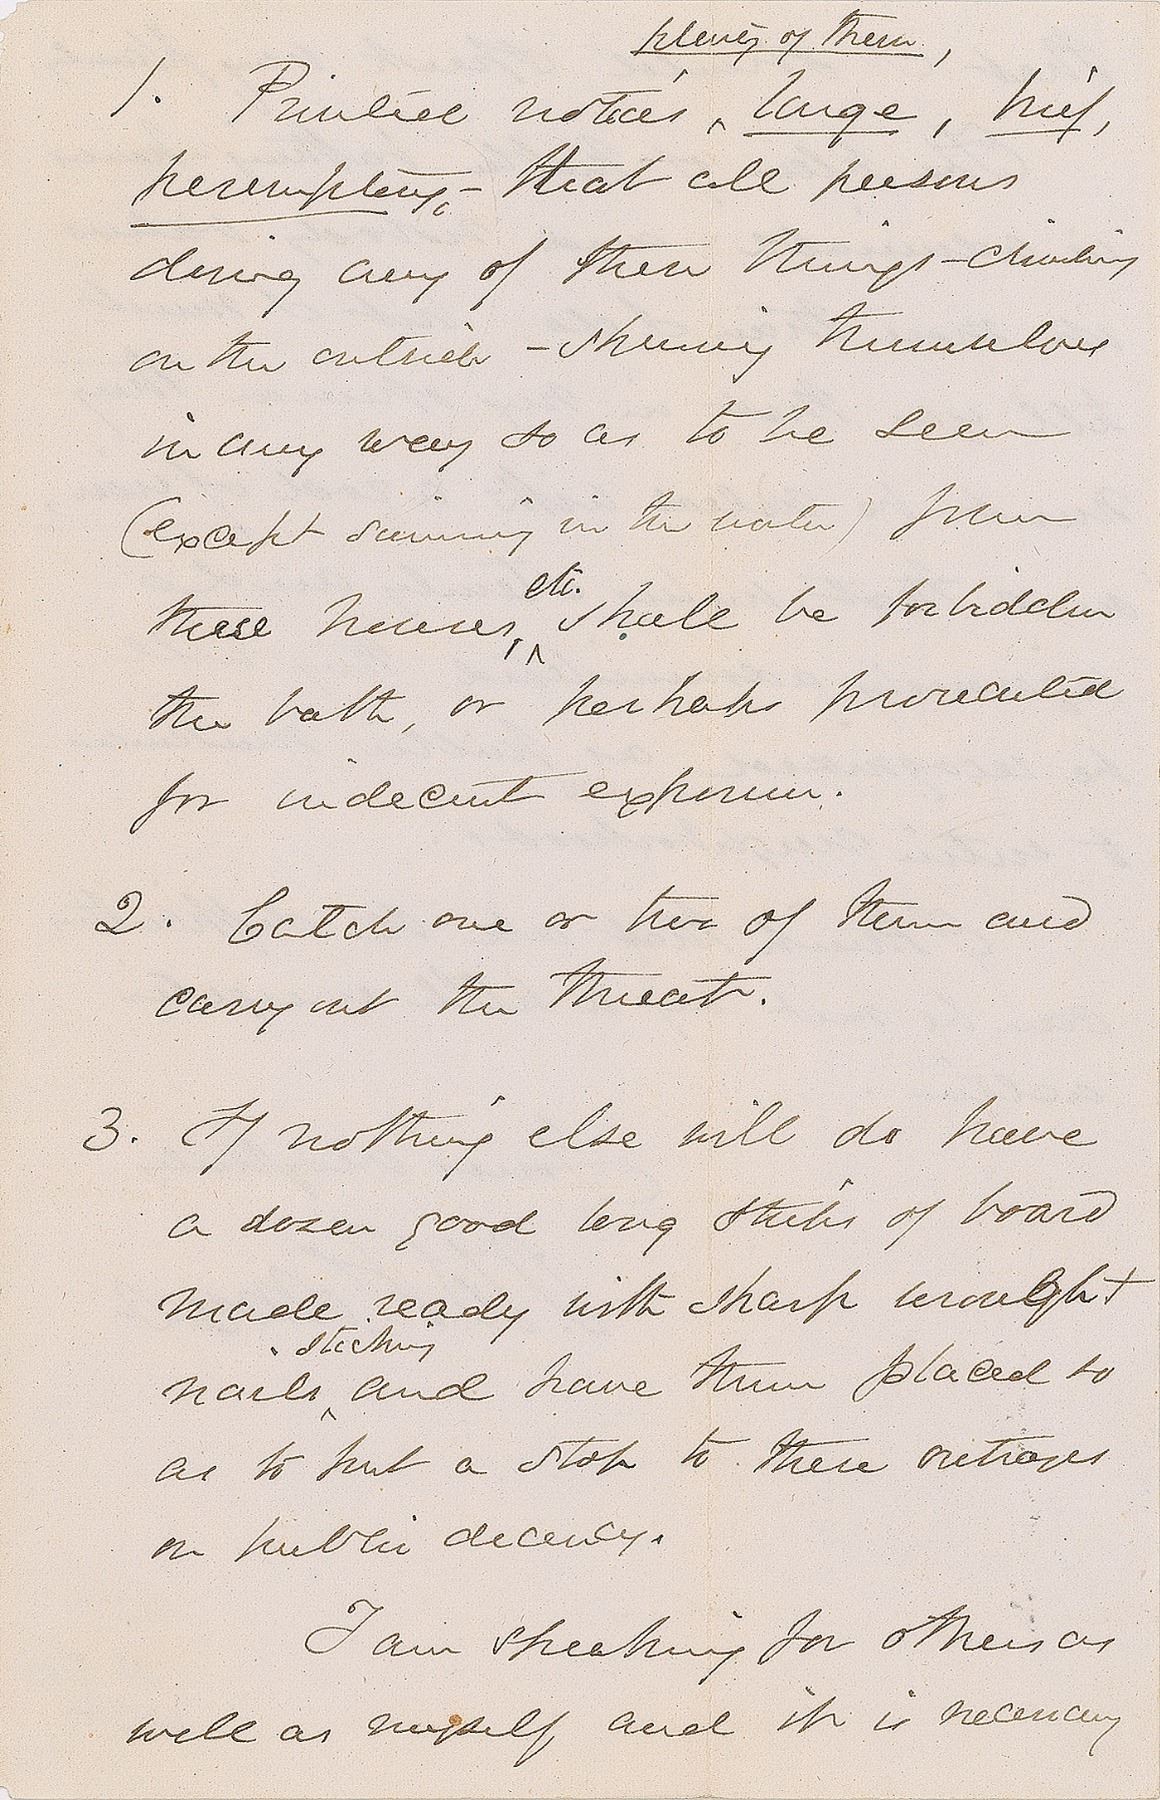 plenty of them,
1. Printed notices ‸ large, brief,
peremptory, - that all persons
doing any of these things - climbing
on the outside - showing themselves
in any way so as to be seen
(except swimming in the water) from
these houses, ‸ etc. shall be forbidden
the bath, or perhaps prosecuted
for indecent exposure.
2. Catch one or two of them and
carry out the threat.
3. If nothing else will do have
a dozen good long strips of board
made ready with sharp wrought
sticking
nails ‸ and have them placed so
as to put a stop to these outrages
on public decency.
I am speaking for others as
well as myself and it is necessary